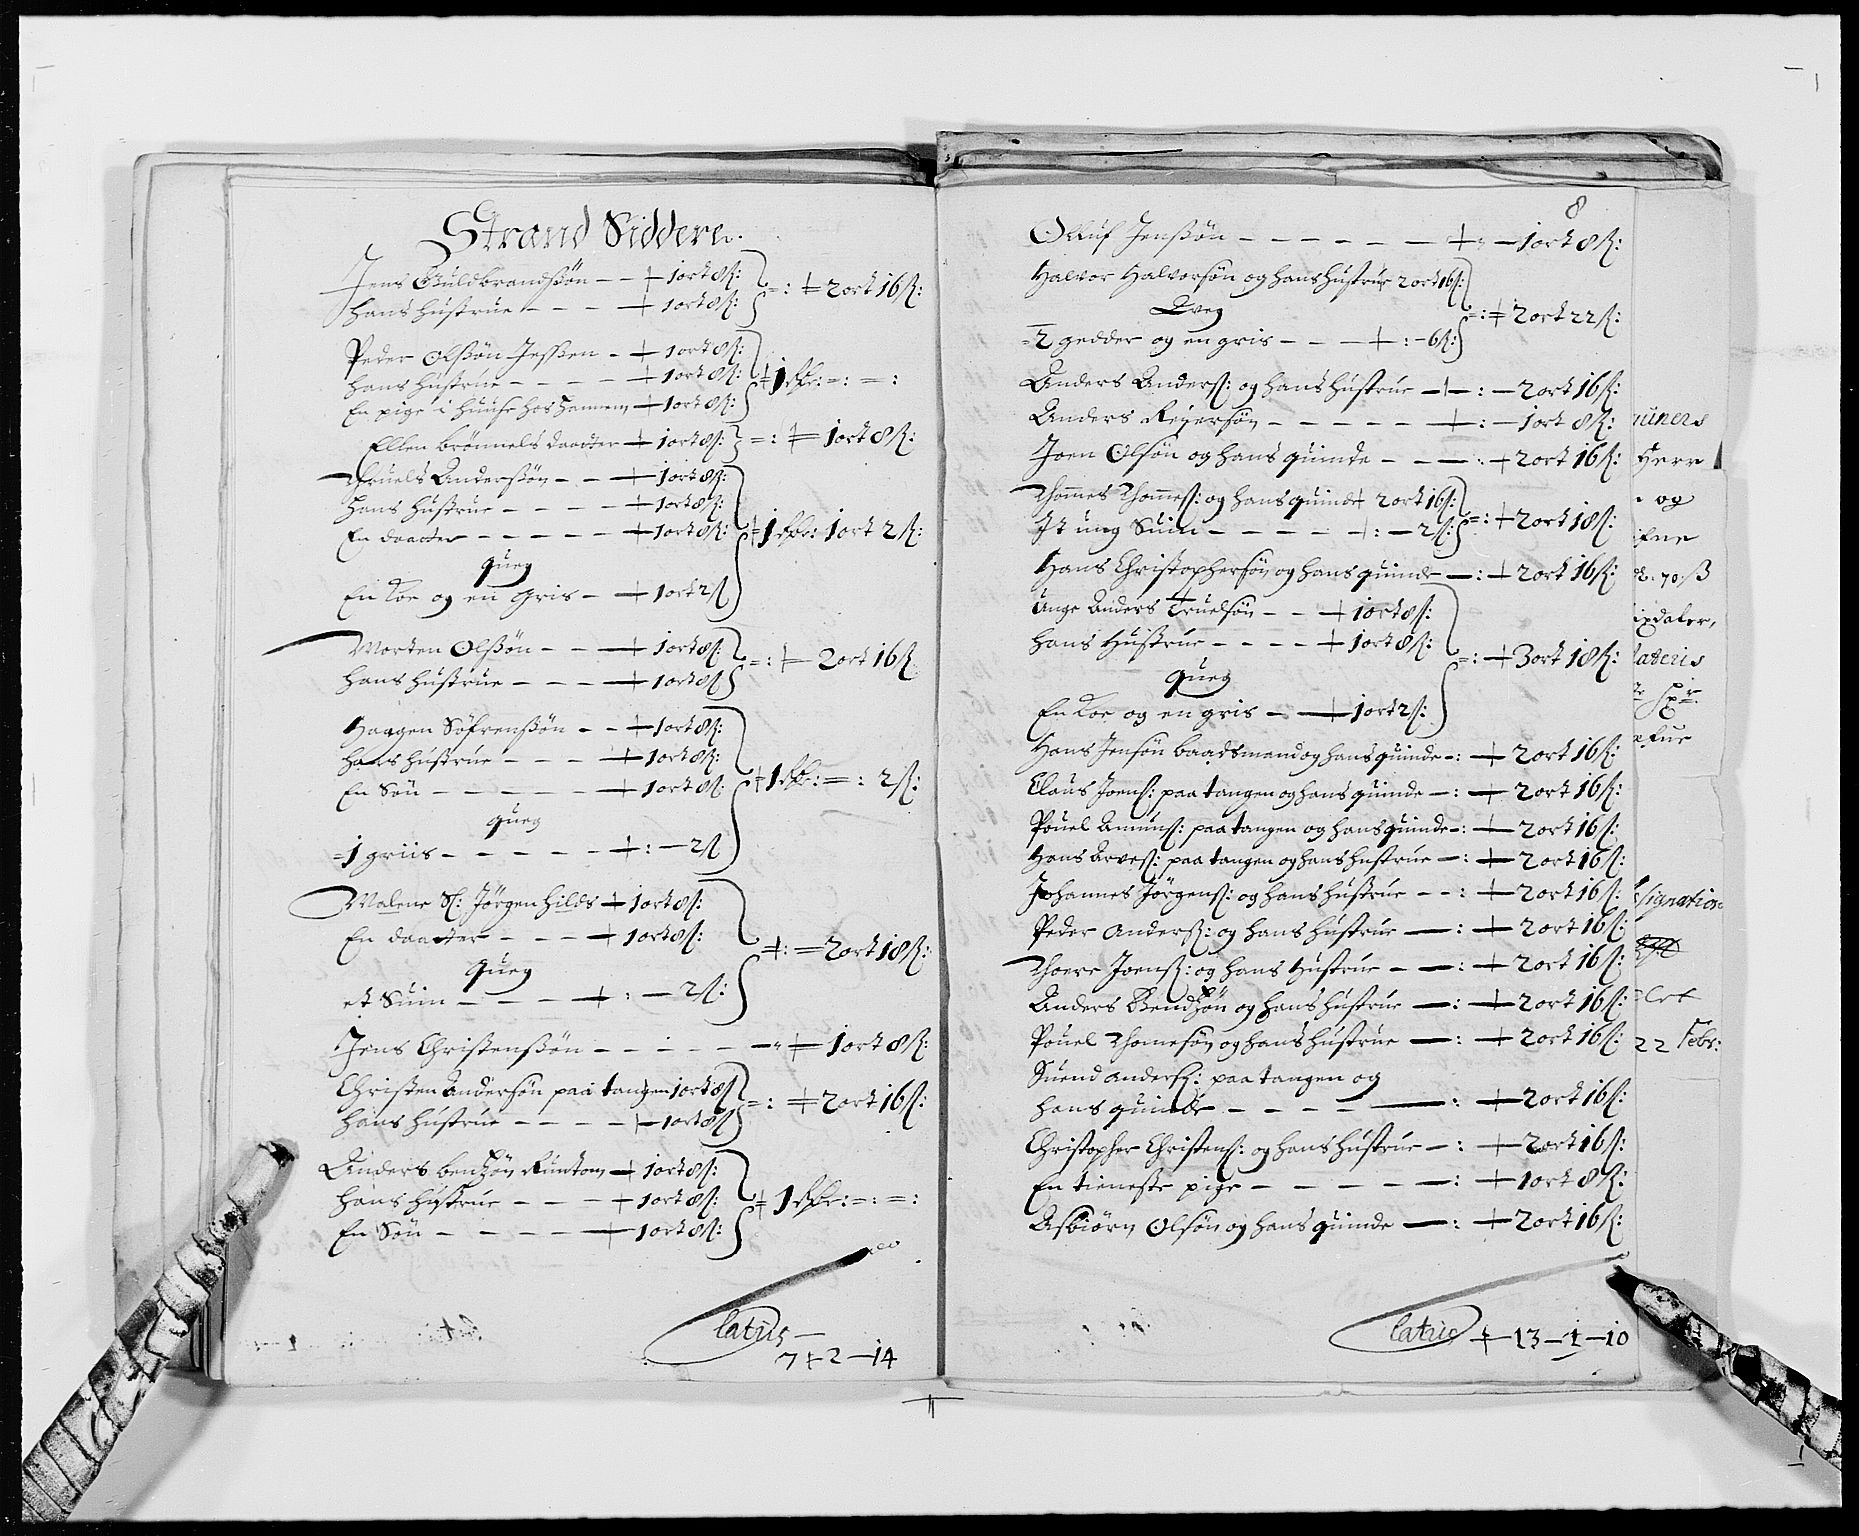 Strand Siddere.
Jens Guldbrandssøn – – + 1 ort 8 s:
hans hustrue – – – + 1 ort 8 s: =: += 2 ort 16 s:
Peder Olssøn Jessen – + 1 ort 8 s:
hans hustrue – – – – + 1 ort 8 s:
En pige i huuse hos hannem + 1 ort 8 s: + 1 : =: =:
Ellen brönnels daatter + 1 ort 8 s: =: += 1 ort 8 s:
Truels Anderssøn – – + 1 ort 8 s:
hans hustrue – – – – + 1 ort 8 s:
En daatter – – – – – + 1 ort 8 s: + 1 : 1 ort 2 s:
queg
En Koe og en gris – + 1 ort 2 s
Morten Olssøn – – + 1 ort 8 s:
hans hustrue – – – + 1 ort 8 s =: += 2 ort 16 s
Haagen Søfrenssøn – – + 1 ort 8 s:
hans hustrue – – – + 1 ort 8 s:
En Søn – – – – – + 1 ort 8 s: + 1 : =: 2 s:
queg
= 1 griis – – – – – + : – 2 s
Malene Sl: Jørgen Hilds + 1 ort 8 s:
En daatter – – – + 1 ort 8 s: +: = 2 ort 18 s:
queg
et Suin – – – – + : – 2 s:
Jens Christenssøn – – – – – – += 1 ort 8 s:
Christen Andersøn paa tangen 1 ort 8 s
hans hustrue – – – – + 1 ort 8 s =: += 2 ort 16 s:
Anders bendzøn Runtom + 1 ort 8 s:
hans hustrue – – – + 1 ort 8 s: + 1 : =: =:
En Søn – – – – + 1 ort 8 s:
latus –
7 + 2 – 14
8
Olluf Jenssøn – – – – – – + – 1 ort 8 s:
Halvor Halvorsøn og hans hustrue 2 ort 16 s:
Qveg =: += 2 ort 22 s:
= 2 gedder og en gris – – – + : – 6 s:
Anders Anders: og hans hustrue –+–: – 2 ort 16 s:
Anders Reyersøn – – – – – +: – 1 ort 8 s:
Joen Olsøn og hans quinde – – – : + 2 ort 16 s:
Thommes Thommes: og hans quinde + 2 ort 16 s:
It ung Suin – – – – – + : – 2 s: =: + 2 ort 18 s:
Hans Christophersøn og hans quinde – : + 2 ort 16 s:
Unge Anders Truelsøn – – + 1 ort 8 s:
hans Hustrue – – – – + 1 ort 8 s: =: + 3 ort 18 s:
queg
En Koe og en gris – – + 1 ort 2 s:
Hans Jensøn baadsmand og hans quinde – : + 2 ort 16 s:
Claus Joens: paa tangen og hans quinde – : + 2 ort 16 s:
Pouel Amuns: paa tangen og hans quinde – : + 2 ort 16 s:
Hans Arves: paa tangen og hans hustrue – : + 2 ort 16 s:
Johannes Jørgens: og hans hustrue – – : + 2 ort 16 s:
Peder Anders: og hans hustrue – : + 2 ort 16 s:
Thore Joens: og hans Hustrue – – : + 2 ort 16 s:
Anders Bendzøn og hans hustrue – : + 2 ort 16 s:
Pouel Thomesøn og hans hustrue – : + 2 ort 16 s:
Suend Anders: paa tangen og
hans quinde – – – – – : + 2 ort 16 s:
Christopher Christens: og hans hustrue – : + 2 ort 16 s:
En tieneste pige – – – – – : + 1 ort 8 s:
Asbiørn Olsøn og hans quinde – : + 2 ort 16 s:
latus + 13 – 1 – 10
Herr
og
ixdaler,
lateris
signation
22 Febr: